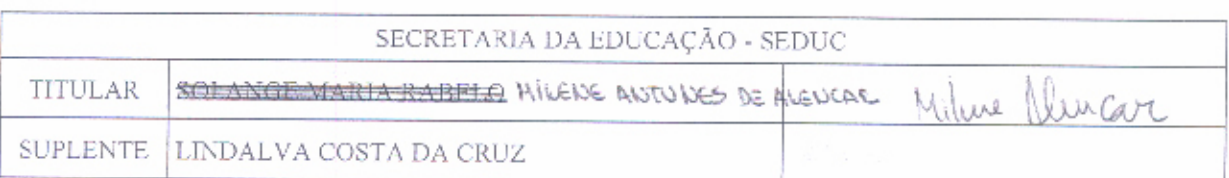 SECRETARIA DA EDUCAÇÃO - SEDUC
TITULAR SOLANGE MARIA RABELO MILENE ANTUNES DE ALENCAR Milene Alencar
SUPLENTE LINDALVA COSTA DA CRUZ